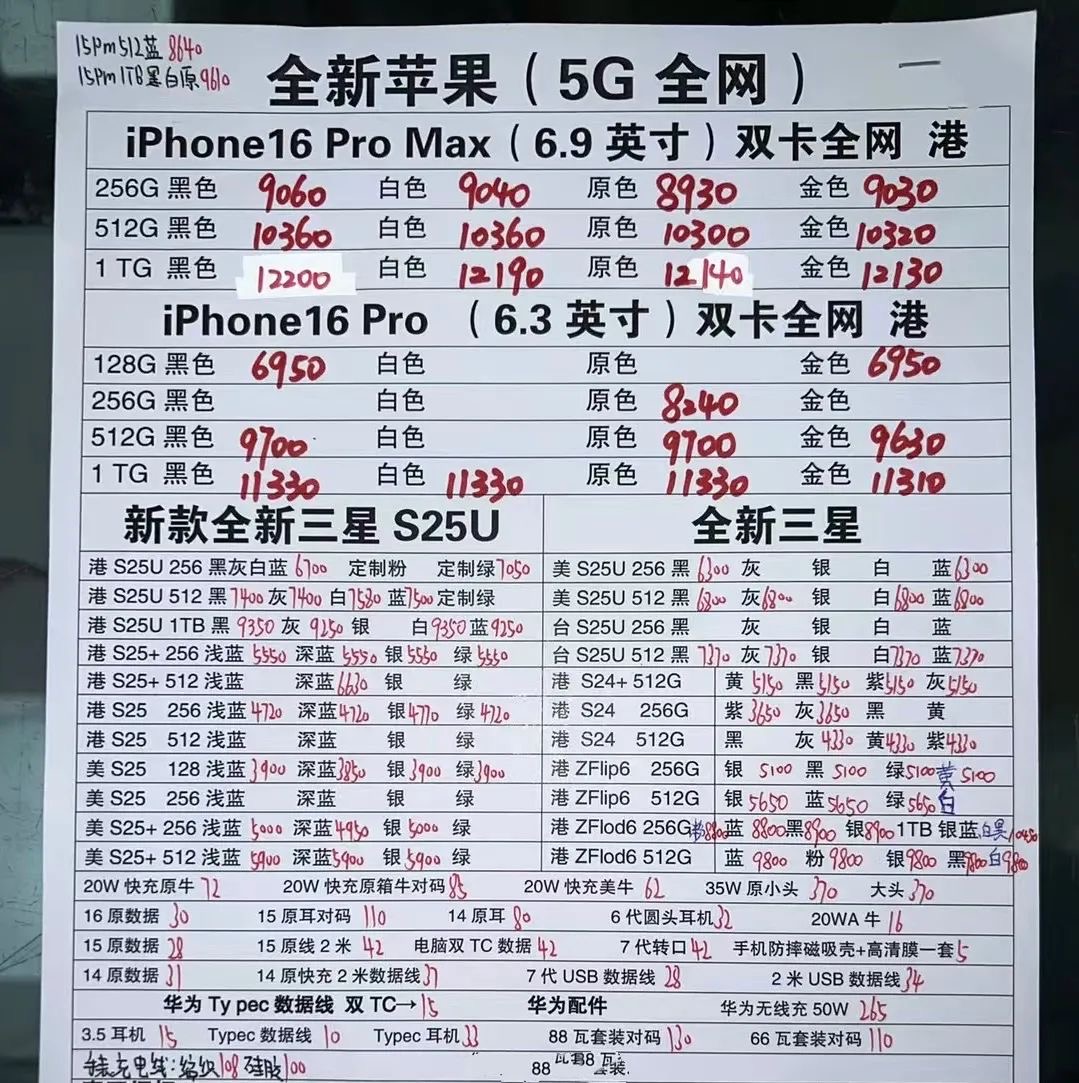 15Pm512蓝8640
15Pm1TB黑白原9610
全新苹果（5G 全网）
iPhone16 Pro Max（6.9 英寸）双卡全网 港
256G 黑色 9060 白色 9040 原色 8930 金色 9030
512G 黑色 10360 白色 10360 原色 10300 金色 10320
1 TG 黑色 12200 白色 12190 原色 12140 金色 12130
iPhone16 Pro （6.3 英寸）双卡全网 港
128G 黑色 6950 白色 原色 金色 6950
256G 黑色 白色 原色 8240 金色
512G 黑色 9700 白色 原色 9700 金色 9630
1 TG 黑色 11330 白色 11330 原色 11330 金色 11310
新款全新三星 S25U
港 S25U 256 黑灰白蓝 6700 定制粉 定制绿 7050
港 S25U 512 黑 7400 灰 7400 白 7580 蓝 7500 定制绿
港 S25U 1TB 黑 9350 灰 9250 银 白 9350 蓝 9250
港 S25+ 256 浅蓝 5550 深蓝 5550 银 5550 绿 5550
港 S25+ 512 浅蓝 深蓝 6630 银 绿
港 S25 256 浅蓝 4720 深蓝 4720 银 4770 绿 4720
港 S25 512 浅蓝 深蓝 银 绿
美 S25 128 浅蓝 3900 深蓝 3850 银 3900 绿 3900
美 S25 256 浅蓝 深蓝 银 绿
美 S25+ 256 浅蓝 5000 深蓝 4950 银 5000 绿
美 S25+ 512 浅蓝 5900 深蓝 5900 银 5900 绿
全新三星
美 S25U 256 黑 6300 灰 银 白 蓝 6300
美 S25U 512 黑 6800 灰 6800 银 白 6800 蓝 6800
台 S25U 256 黑 灰 银 白 蓝
台 S25U 512 黑 7370 灰 7370 银 白 7370 蓝 7370
港 S24+ 512G 黄 5150 黑 5150 紫 5150 灰 5150
港 S24 256G 紫 3650 灰 3650 黑 黄
港 S24 512G 黑 灰 4330 黄 4330 紫 4330
港 ZFlip6 256G 银 5100 黑 5100 绿 5100 黄 5100
港 ZFlip6 512G 银 5650 蓝 5650 绿 5650 白
港 ZFlod6 256G 粉 8800 蓝 8800 黑 8900 银 8900 1TB 银蓝 白黑 10450
港 ZFlod6 512G 蓝 9800 粉 9800 银 9800 黑 9800 白 9800
20W 快充原牛 72 20W 快充原箱牛对码 85 20W 快充美牛 62 35W 原小头 370 大头 370
16 原数据 30 15 原耳对码 110 14 原耳 80 6 代圆头耳机 32 20WA 牛 16
15 原数据 28 15 原线 2 米 42 电脑双 TC 数据 42 7 代转口 42 手机防摔磁吸壳+高清膜一套 5
14 原数据 31 14 原快充 2 米数据线 37 7 代 USB 数据线 28 2 米 USB 数据线 34
华为 Ty pec 数据线 双 TC→15 华为配件 华为无线充 50W 265
3.5 耳机 15 Typec 数据线 10 Typec 耳机 33 88 瓦套装对码 130 66 瓦套装对码 110
充电线:编织108 硅胶100 88